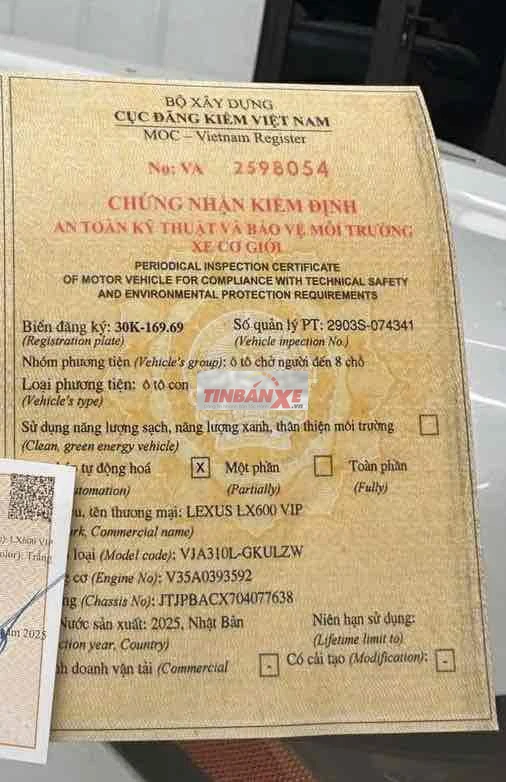 BỘ XÂY DỰNG
CỤC ĐĂNG KIỂM VIỆT NAM
MOC – Vietnam Register
No: VA 2598054
CHỨNG NHẬN KIỂM ĐỊNH
AN TOÀN KỸ THUẬT VÀ BẢO VỆ MÔI TRƯỜNG
XE CƠ GIỚI
PERIODICAL INSPECTION CERTIFICATE
OF MOTOR VEHICLE FOR COMPLIANCE WITH TECHNICAL SAFETY
AND ENVIRONMENTAL PROTECTION REQUIREMENTS
Biển đăng ký: 30K-169.69 Số quản lý PT: 2903S-074341
(Registration plate) (Vehicle inpection No.)
Nhóm phương tiện (Vehicle's group): ô tô chở người đến 8 chỗ
Loại phương tiện: ô tô con
(Vehicle's type)
TINBANXE.vn
Sử dụng năng lượng sạch, năng lượng xanh, thân thiện môi trường
(Clean, green energy vehicle)
tự động hoá X Một phần Toàn phần
utomation) (Partially) (Fully)
u, tên thương mại: LEXUS LX600 VIP
rk, Commercial name)
loại (Model code): VJA310L-GKULZW
cơ (Engine No): V35A0393592
ng (Chassis No): JTJPBACX704077638
Nước sản xuất: 2025, Nhật Bản Niên hạn sử dụng:
ction year, Country) (Lifetime limit to)
nh doanh vận tải (Commercial - Có cải tạo (Modification): -
): LX600 VIP
olor): Trắng
ăm 2025